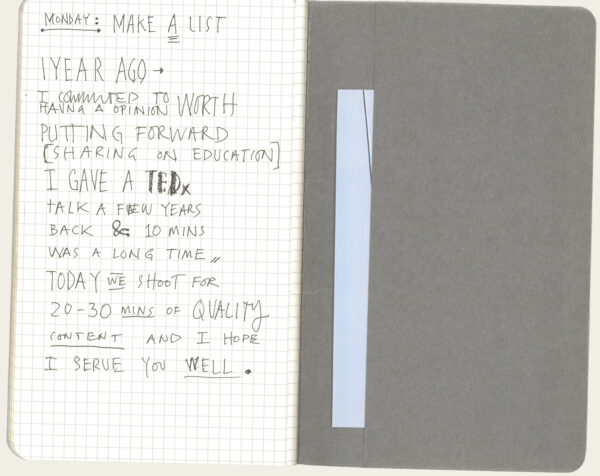 MONDAY: MAKE A LIST
1 YEAR AGO →
I COMMITTED TO
HAVING A OPINION WORTH
PUTTING FORWARD
[SHARING ON EDUCATION]
I GAVE A TEDx
TALK A FEW YEARS
BACK & 10 MINS
WAS A LONG TIME,,
TODAY WE SHOOT FOR
20-30 MINS OF QUALITY
CONTENT AND I HOPE
I SERVE YOU WELL.